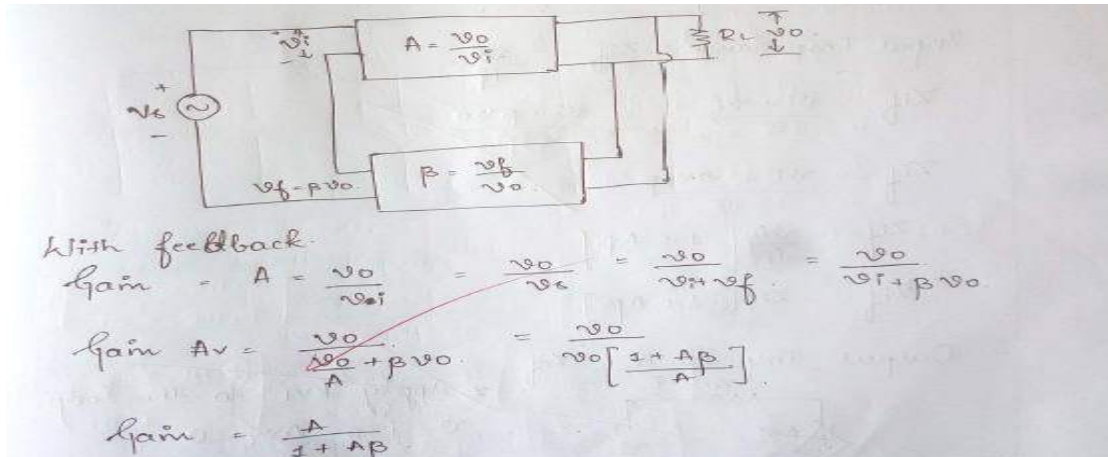 + vi -
A = vo/vi
RL vo
+
vs
-
vf = βvo.
β = vf/vo
With feedback.
Gain = A = vo/vi = vo/vs = vo/vi+vf. = vo/vi+βvo.
Gain Av = vo/vo/A + βvo. = vo/vo[1+Aβ/A].
Gain = A/1+Aβ.